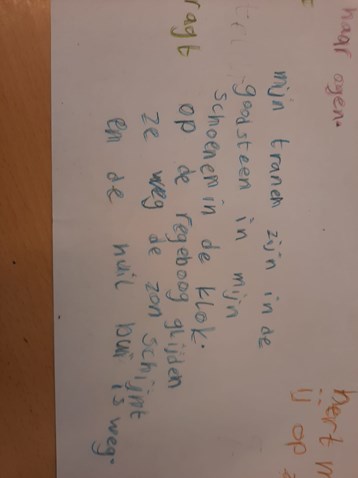 haar ogen.
ragt
mijn tranen zijn in de
goodsteen in mijn
schoenen in de klok.
op de regeboog glijden
ze weg de zon schijnt
en de huil bui is weg.
hert m
ij op